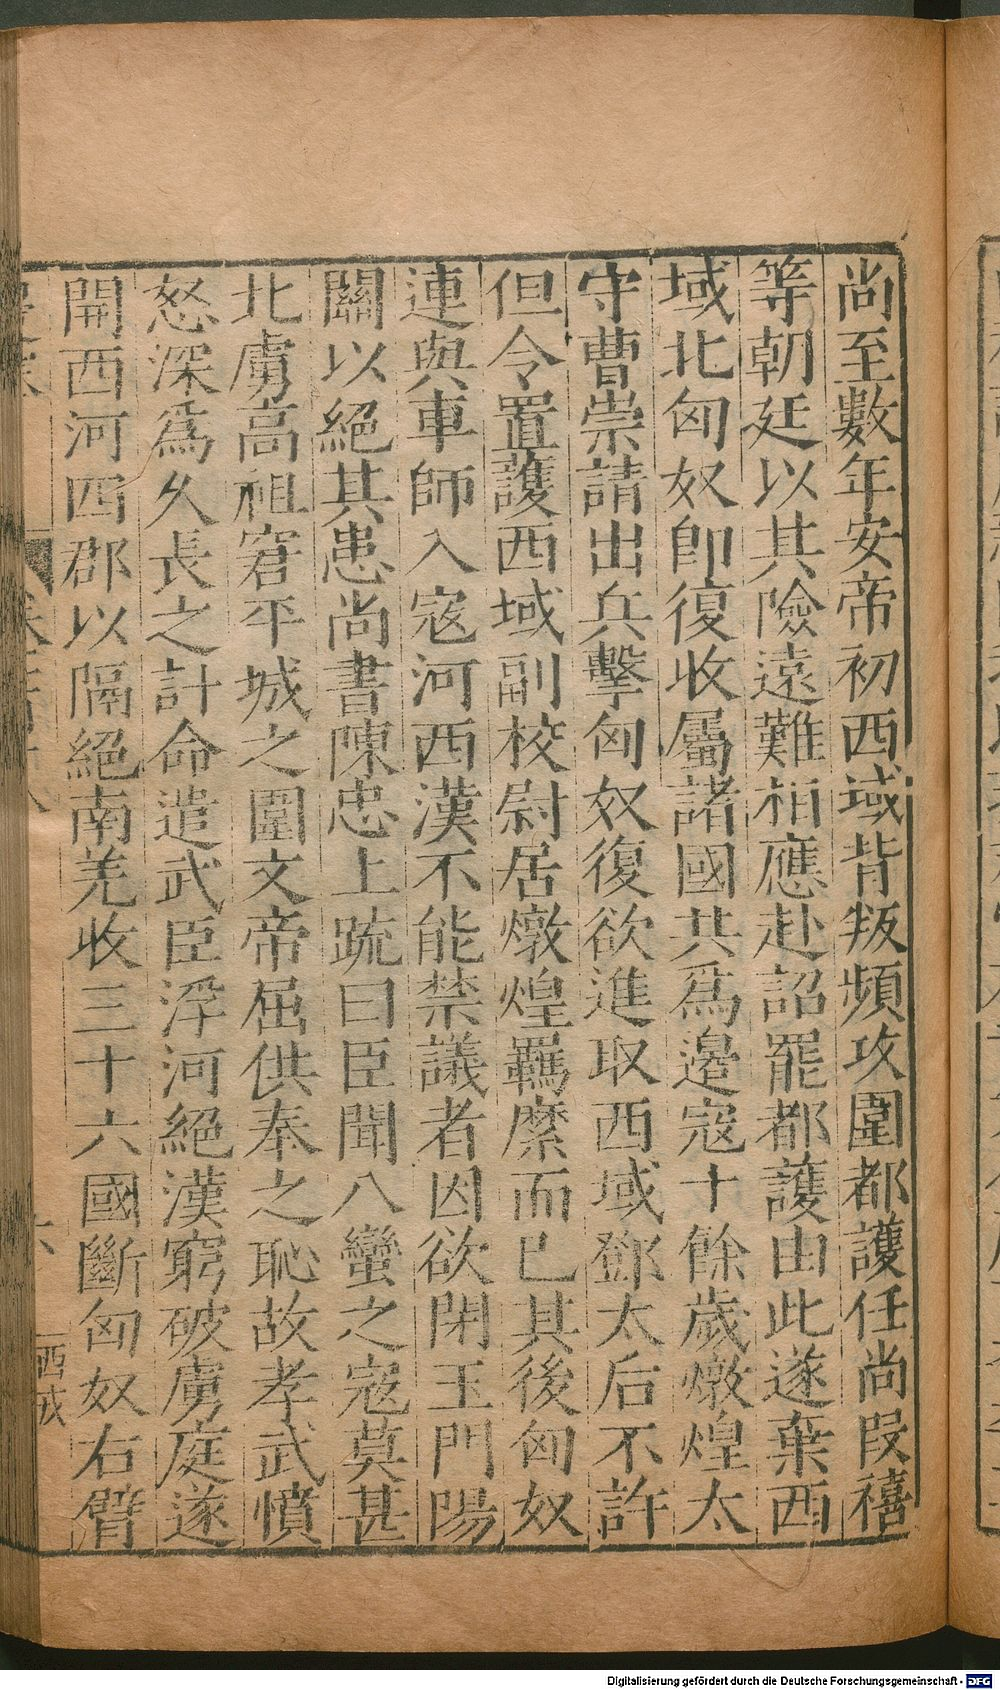 尚至數年安帝初西域背叛頻攻圍都護任尚段禧
等朝廷以其險遠難相應赴詔罷都護由此遂棄西
域北匈奴即復收屬諸國共爲邊寇十餘歲燉煌太
守曹崇請出兵擊匈奴復欲進取西域鄧太后不許
但令置護西域副校尉居燉煌羈縻而已其後匈奴
連與車師入寇河西漢不能禁議者因欲閉玉門陽
關以絕其患尚書陳忠上疏曰臣聞八蠻之寇莫甚
北虜高祖窘平城之圍文帝屈供奉之恥故孝武憤
怒深爲久長之計命遣武臣浮河絕漢窮破虜庭遂
開西河四郡以隔絕南羌收三十六國斷匈奴右臂
六
西戎
Digitalisierung gefördert durch die Deutsche Forschungsgemeinschaft - DFG